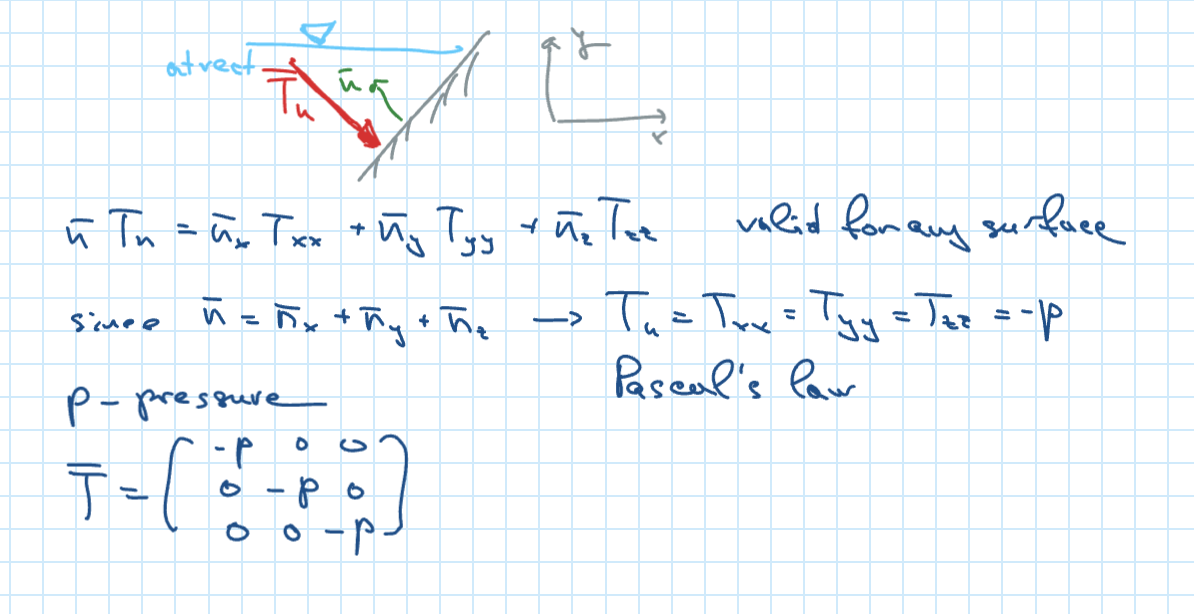 y
at rest
T̿n n̄
x
n̄ Tn = n̄x Txx + n̄y Tyy + n̄z Tzz valid for any surface
since n̄ = n̄x + n̄y + n̄z → Tn = Txx = Tyy = Tzz = -p
Pascal's law
p - pressure
T̿ = ( -p 0 0
0 -p 0
0 0 -p )